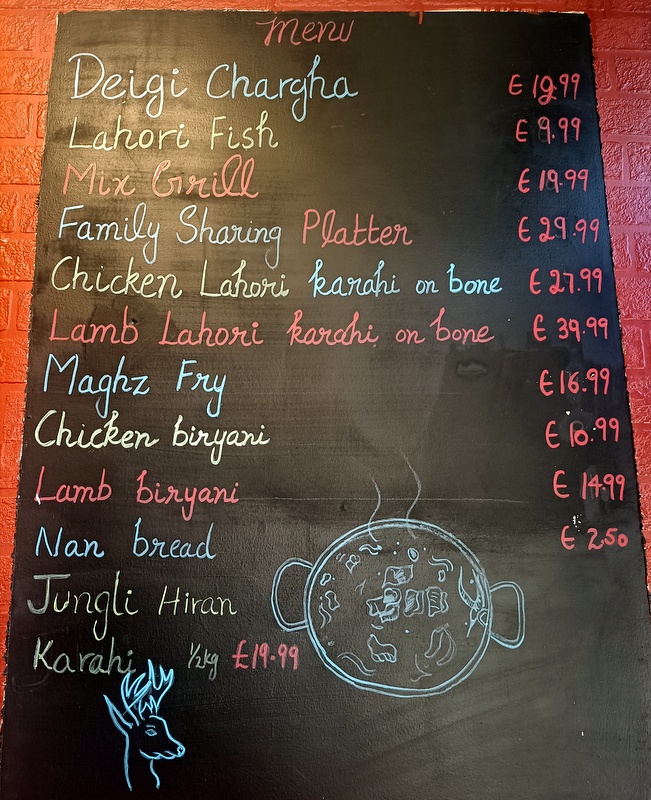 Menu
Deigi Chargha £ 19.99
Lahori Fish £ 9.99
Mix Grill £ 19.99
Family Sharing Platter £ 29.99
Chicken Lahori karahi on bone £ 27.99
Lamb Lahori karahi on bone £ 39.99
Maghz Fry £ 16.99
Chicken biryani £ 10.99
Lamb biryani £ 14.99
Nan bread £ 2.50
Jungli Hiran
Karahi ½kg £19.99